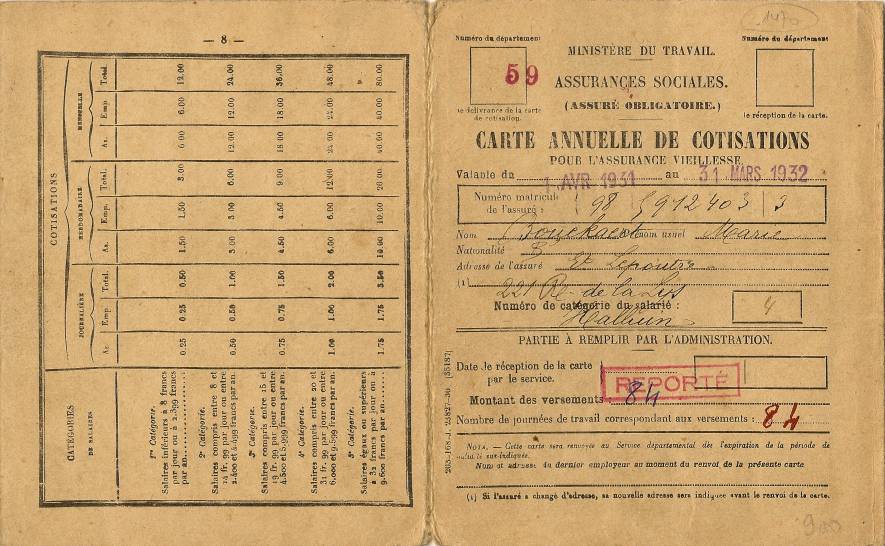 — 8 —
COTISATIONS
CATÉGORIES DE SALAIRES
JOURNALIÈRE HEBDOMADAIRE MENSUELLE
As. Emp. Total. As. Emp. Total. As. Emp. Total.
1re Catégorie.
Salaires inférieurs à 8 francs
par jour ou à 2.399 francs
par an
0.25 0.25 0.50 1.50 1.50 3.00 6.00 6.00 12.00
2e Catégorie.
Salaires compris entre 8 et
14 fr. 99 par jour ou entre
2.400 et 4.499 francs par an.
0.50 0.50 1.00 3.00 3.00 6.00 12.00 12.00 24.00
3e Catégorie.
Salaires compris entre 15 et
19 fr. 99 par jour ou entre
4.500 et 5.999 francs par an.
0.75 0.75 1.50 4.50 4.50 9.00 18.00 18.00 36.00
4e Catégorie.
Salaires compris entre 20 et
31 fr. 99 par jour ou entre
6.000 et 9.599 francs par an.
1.00 1.00 2.00 6.00 6.00 12.00 24.00 24.00 48.00
5e Catégorie.
Salaires égaux ou supérieurs
à 32 francs par jour ou à
9.600 francs par an.
1.75 1.75 3.50 10.00 10.00 20.00 40.00 40.00 80.00
1470
Numéro du département
59
de délivrance de la carte
de cotisation.
MINISTÈRE DU TRAVAIL.
ASSURANCES SOCIALES.
(ASSURÉ OBLIGATOIRE.)
Numéro du département
de réception de la carte.
CARTE ANNUELLE DE COTISATIONS
POUR L'ASSURANCE VIEILLESSE
Valable du 1 AVR 1931 au 31 MARS 1932
Numéro matricule
de l'assuré : 98 5912403 3
Nom Prénom usuel Marie
Nationalité
Adresse de l'assuré Et Lepoutre
(1) 221 R. de la Lys
Numéro de catégorie du salarié : 4
Halluin
PARTIE À REMPLIR PAR L'ADMINISTRATION.
Date de réception de la carte
par le service.
REPORTÉ
Montant des versements 84
Nombre de journées de travail correspondant aux versements : 84
NOTA. — Cette carte sera renvoyée au Service départemental dès l'expiration de la période de
validité sus-indiquée.
Nom et adresse du dernier employeur au moment du renvoi de la présente carte
(1) Si l'assuré a changé d'adresse, sa nouvelle adresse sera indiquée avant le renvoi de la carte.
900